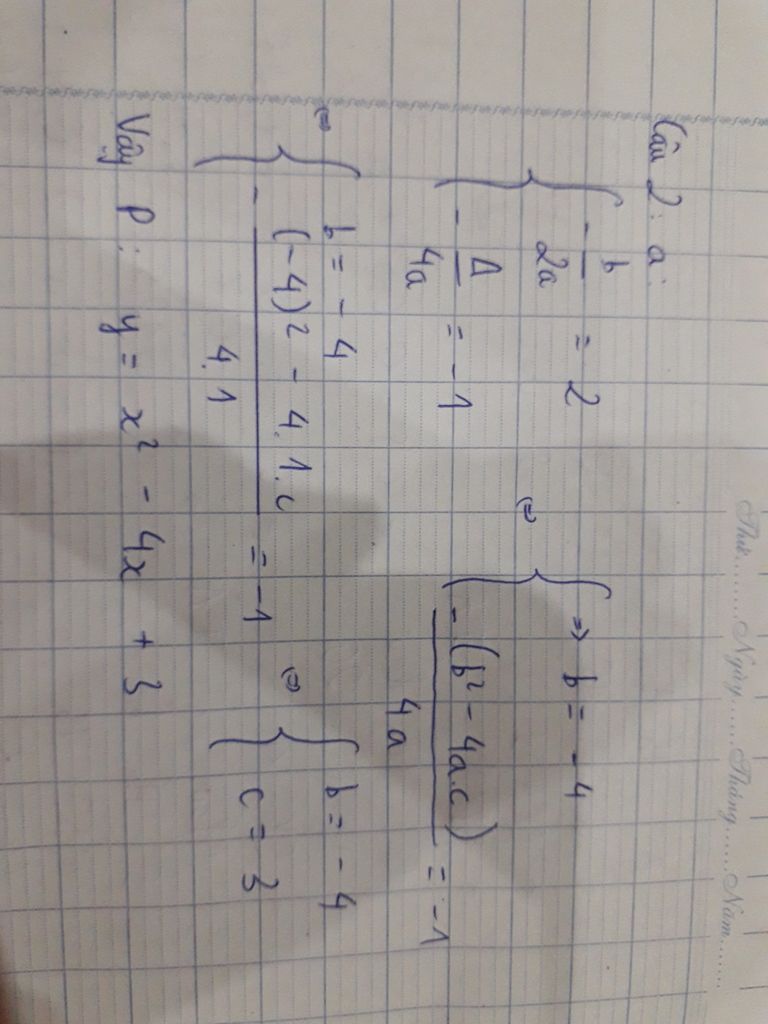 Thứ........Ngày......Tháng......Năm......
Câu 2: a:
{ - b/2a = 2
{ - Δ/4a = -1
⇔ { => b = -4
{ - (b² - 4a.c)/4a = -1
⇔ { b = -4
{ - (-4)² - 4.1.c / 4.1 = -1
⇔ { b = -4
{ c = 3
Vậy P: y = x² - 4x + 3